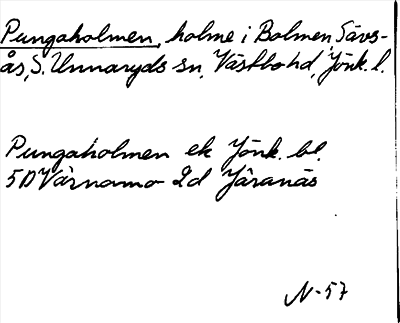 Pungaholmen, holme i Bolmen, Sävs-
ås, S. Unnaryds sn, Västbo hd, Jönk. l.
Pungaholmen ek Jönk. bl.
5D Värnamo 2d Järanäs
N-57